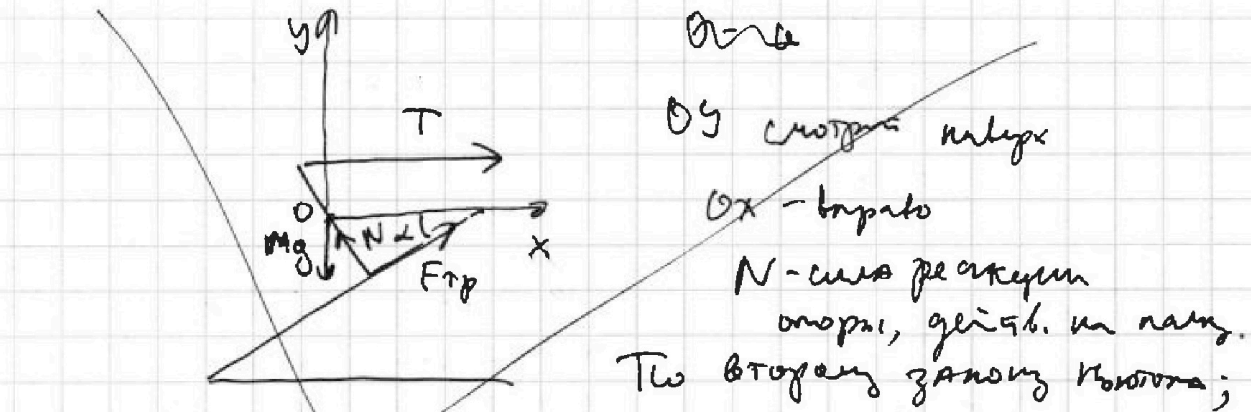 y
T
OY смотрит наверх
O
Ox - вправо
Mg N α x
Fтр
N - сила реакции
опоры, действ. на палку.
По второму закону Ньютона;